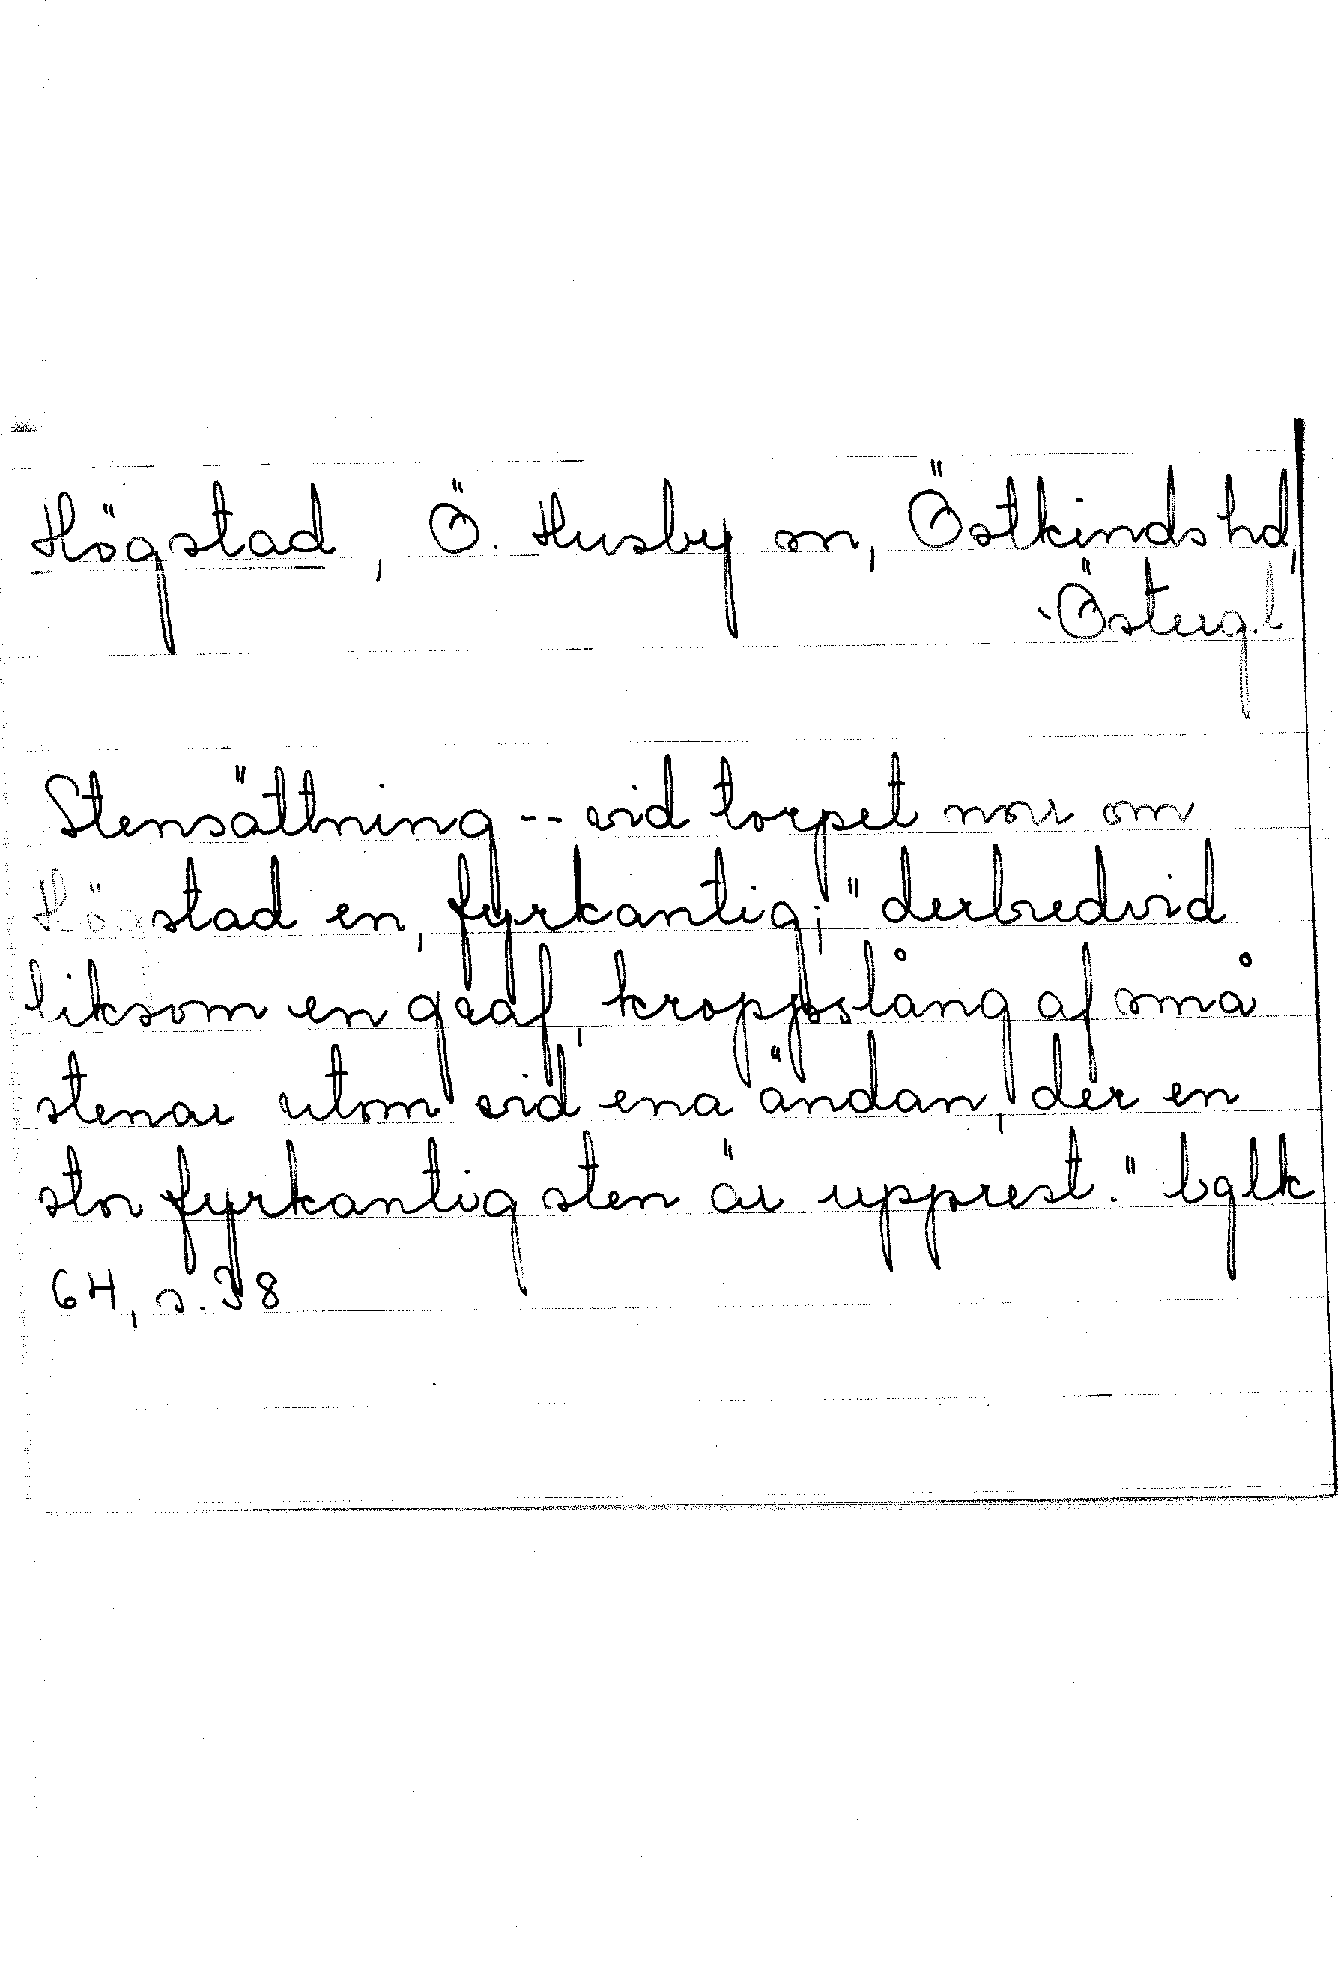 Högstad, Ö. Husby sn, Östkinds hd,
Österg.l
Stensättning -- vid torpet norr om
Högstad en, fyrkantig; "derbredvid
liksom en graf, kroppslång af små
stenar utom vid ena ändan, der en
stor fyrkantig sten är upprest." bglk
64, s. 38